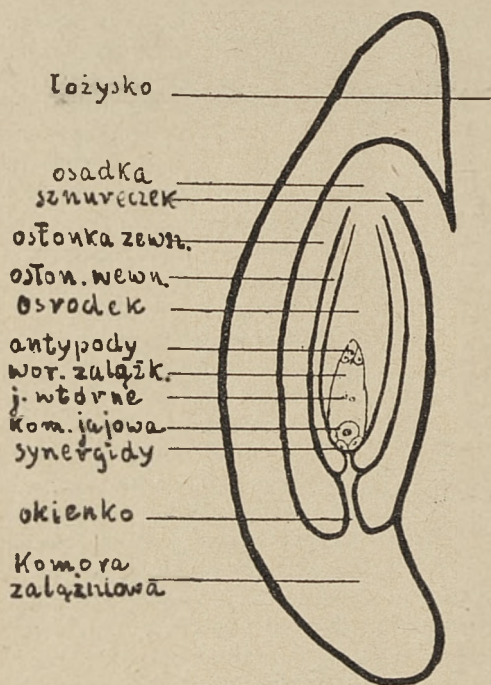 łożysko
osadka
sznureczek
osłonka zewn.
osłon. wewn.
ośrodek
antypody
wor. zalążk.
j. wtórne
kom. jajowa
synergidy
okienko
Komora
zalążniowa